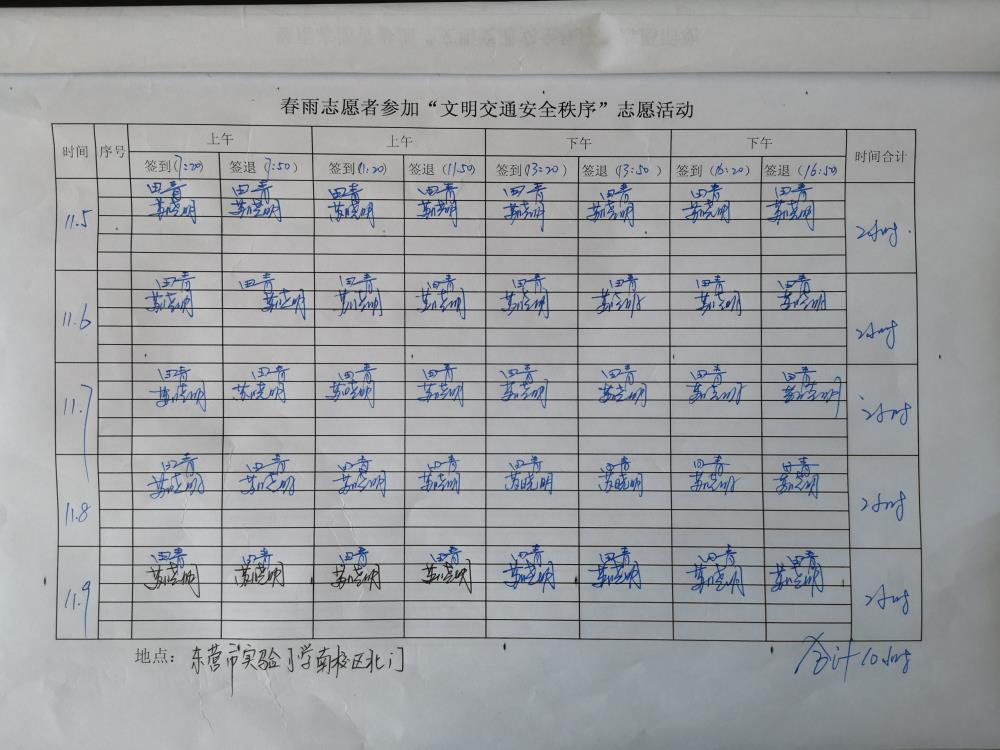 春雨志愿者参加“文明交通安全秩序”志愿活动
时间 序号 上午 上午 下午 下午 时间合计
签到(7:20) 签退(7:50) 签到(11:20) 签退(11:50) 签到(13:20) 签退(13:50) 签到(16:20) 签退(16:50)
11.5 田青 田青 田青 田青 田青 田青 田青 田青
苏晓明 苏晓明 苏晓明 苏晓明 苏晓明 苏晓明 苏晓明 苏晓明
2小时
11.6 田青 田青 田青 田青 田青 田青 田青 田青
苏晓明 苏晓明 苏晓明 苏晓明 苏晓明 苏晓明 苏晓明 苏晓明
2小时
11.7 田青 田青 田青 田青 田青 田青 田青 田青
苏晓明 苏晓明 苏晓明 苏晓明 苏晓明 苏晓明 苏晓明 苏晓明
2小时
11.8 田青 田青 田青 田青 田青 田青 田青 田青
苏晓明 苏晓明 苏晓明 苏晓明 苏晓明 苏晓明 苏晓明 苏晓明
2小时
11.9 田青 田青 田青 田青 田青 田青 田青 田青
苏晓明 苏晓明 苏晓明 苏晓明 苏晓明 苏晓明 苏晓明 苏晓明
2小时
地点：东营市实验小学南校区北门
合计10小时